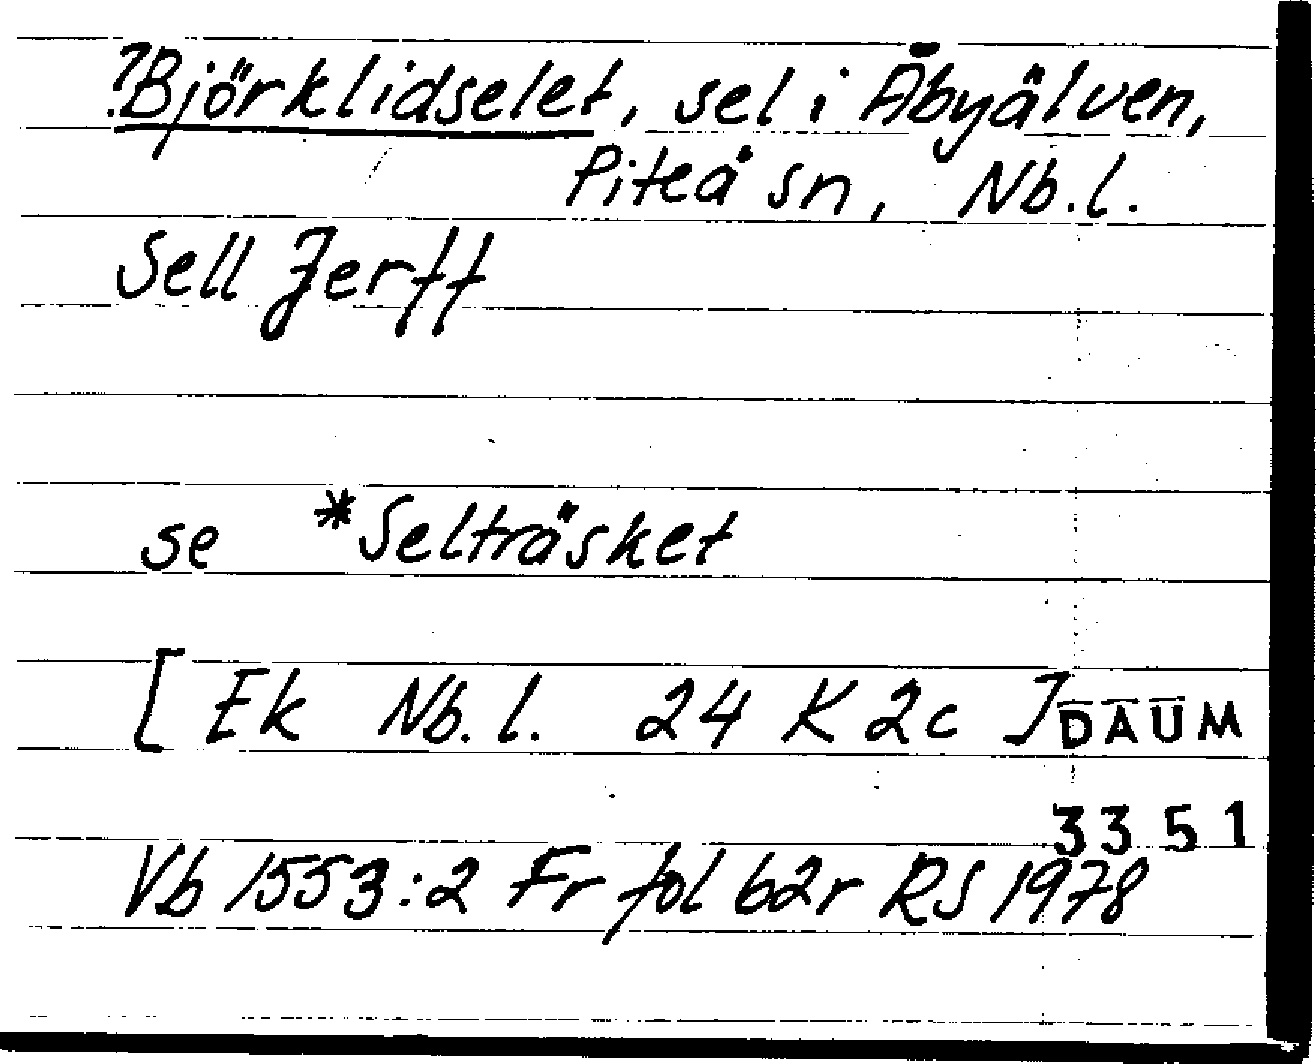 ?Björklidselet, sel i Åbyälven,
Piteå sn, Nb.l.
Sell Jerff
se *Selträsket
[Ek Nb.l. 24 K 2c]
DAUM
3351
Vb 1553:2 Fr fol 62r RS 1978